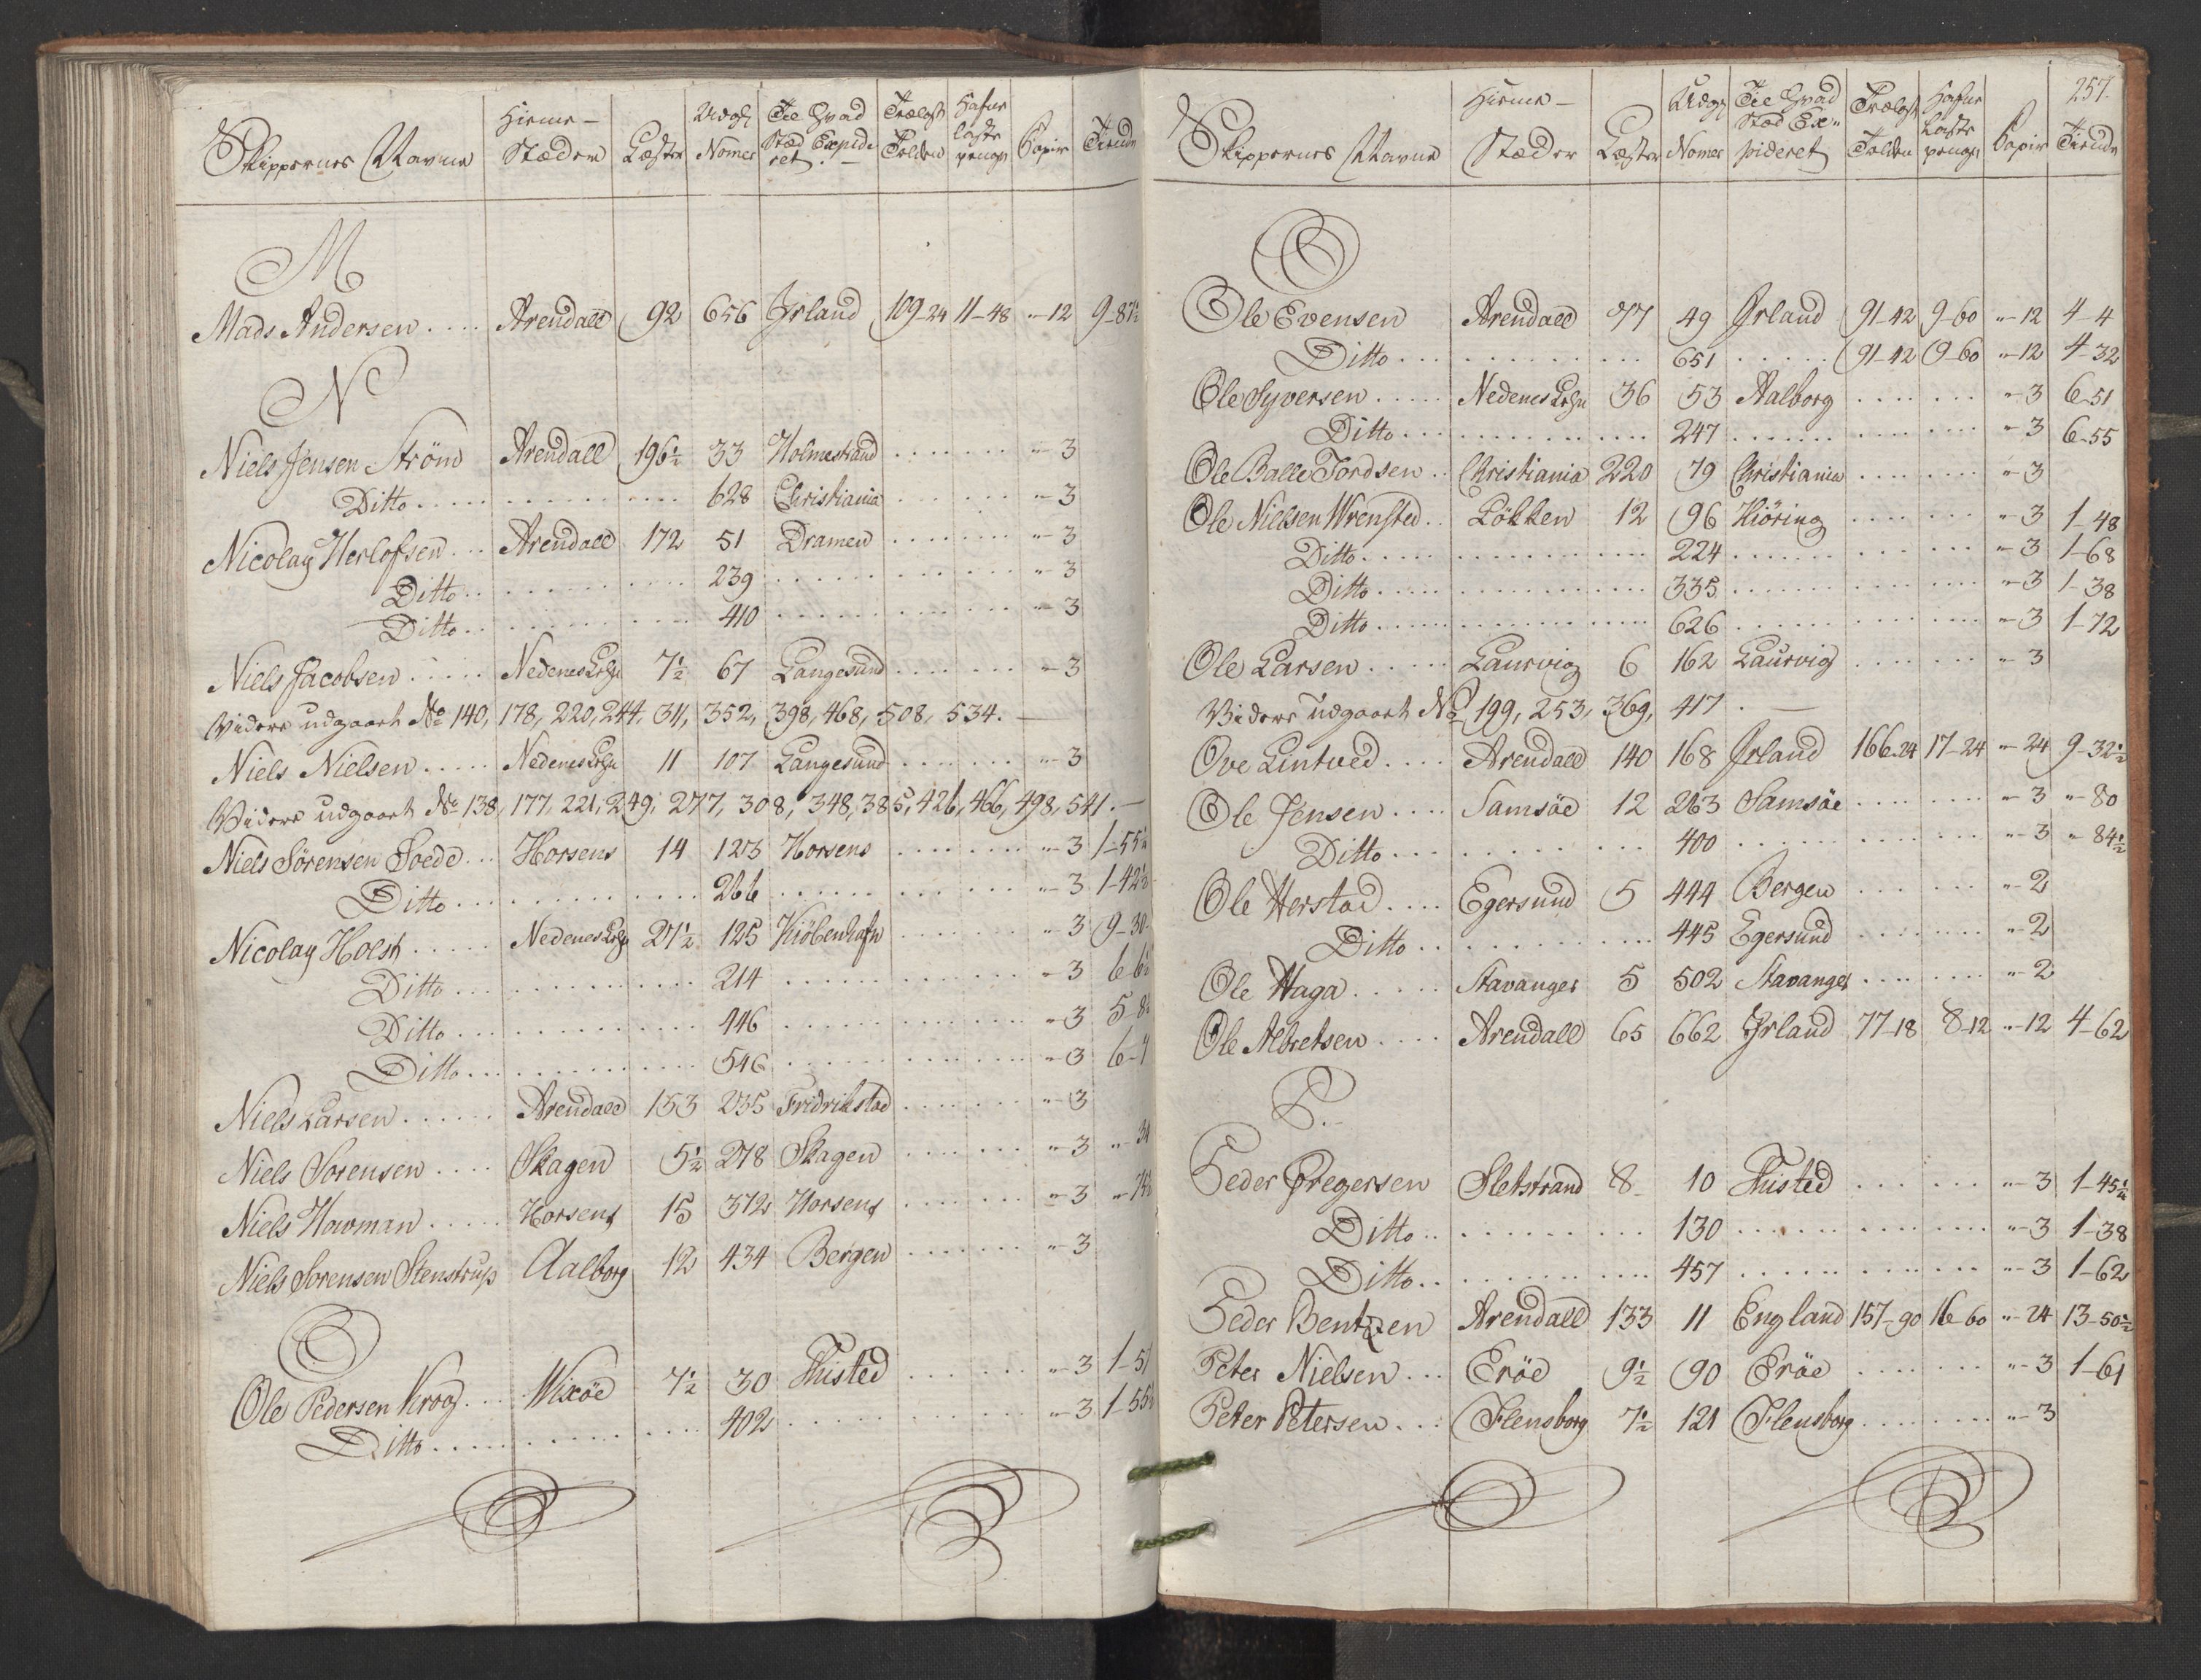 Skippernes Navne Hieme-Stæder Læster Udgs Nomer Til Hvad Stæd Expederet Trælast Tolden Hafne laste penge Papir Tiende
M
Mads Andersen .... Arendall 92 656 Irland 109-24 11-48 "-12 9-87½
N
Niels Jensen Ström Arendall 196½ 33 Holmestrand "-3
Ditto 628 Christiania "-3
Nicolay Herlofsen Arendall 172 51 Dramen "-3
Ditto 239 "-3
Ditto 410 "-3
Niels Jacobsen Nedenes Lehn 7½ 67 Langesund "-3
Videre udgaaet No 140, 178, 220, 244, 311, 352, 398, 468, 508, 534.
Niels Nielsen Nedenes Lehn 11 107 Langesund "-3
Videre udgaaet No 138, 177, 221, 249, 277, 308, 348, 385, 426, 466, 498, 541.
Niels Sörensen Soede Horsens 14 123 Horsens "-3 1-55½
Ditto 266 "-3 1-42½
Nicolay Holst Nedenes Lehn 27½ 125 Kiöbenhafn "-3 9-30
Ditto 214 "-3 6-6½
Ditto 446 "-3 5-8
Ditto 546 "-3 6-
Niels Larsen Arendall 153 235 Fridrikstad "-3
Niels Sorensen Skagen 5½ 278 Skagen "-3 "-34
Niels Howman Horsens 15 372 Horsens "-3
Niels Sorensen Stenstrup Aalborg 12 434 Bergen "-3
O
Ole Pedersen Kroog Wixöe 7½ 30 Thisted "-3 1-57
Ditto 402 "-3 1-55½
257.
Skippernes Navne Hieme-Stæder Læster Udgs Nomer Til Hvad Stæd Expideret Trælast Tolden Hafne Laste penge Papir Tiende
O
Ole Evensen Arendall 77 49 Irland 91-42 9-60 "-12 4-4
Ditto 651 91-42 9-60 "-12 4-32
Ole Syversen Nedenes Lehn 36 53 Aalborg "-3 6-51
Ditto 247 "-3 6-55
Ole Balle Tordsen Christiania 220 79 Christiania "-3
Ole Nielsen Wrensted Lökken 12 96 Hiöring "-3 1-48
Ditto 224 "-3 1-68
Ditto 335 "-3 1-38
Ditto 626 "-3 1-72
Ole Larsen Laurvig 6 162 Laurvig "-3
Videre udgaaet No 199, 253, 369, 417.
Ove Lintved Arendall 140 168 Irland 166-24 17-24 "-24 9-32½
Ole Jensen Samsöe 12 263 Samsöe "-3 "-80
Ditto 400 "-3 "-84½
Ole Herstad Egersund 5 444 Bergen "-2
Ditto 445 Egersund "-2
Ole Haga Stavanger 5 502 Stavanger "-2
Ole Albretsen Arendall 65 662 Irland 77-18 8-12 "-12 4-62
P.
Peder Gregersen Sletstrand 8 10 Thisted "-3 1-45½
Ditto 130 "-3 1-38
Ditto 457 "-3 1-62
Peder Bentzen Arendall 133 11 England 157-90 16-60 "-24 13-50½
Peter Nielsen Eröe 9½ 90 Eröe "-3 1-61
Peter Petersen Flensborg 7½ 121 Flensborg "-3